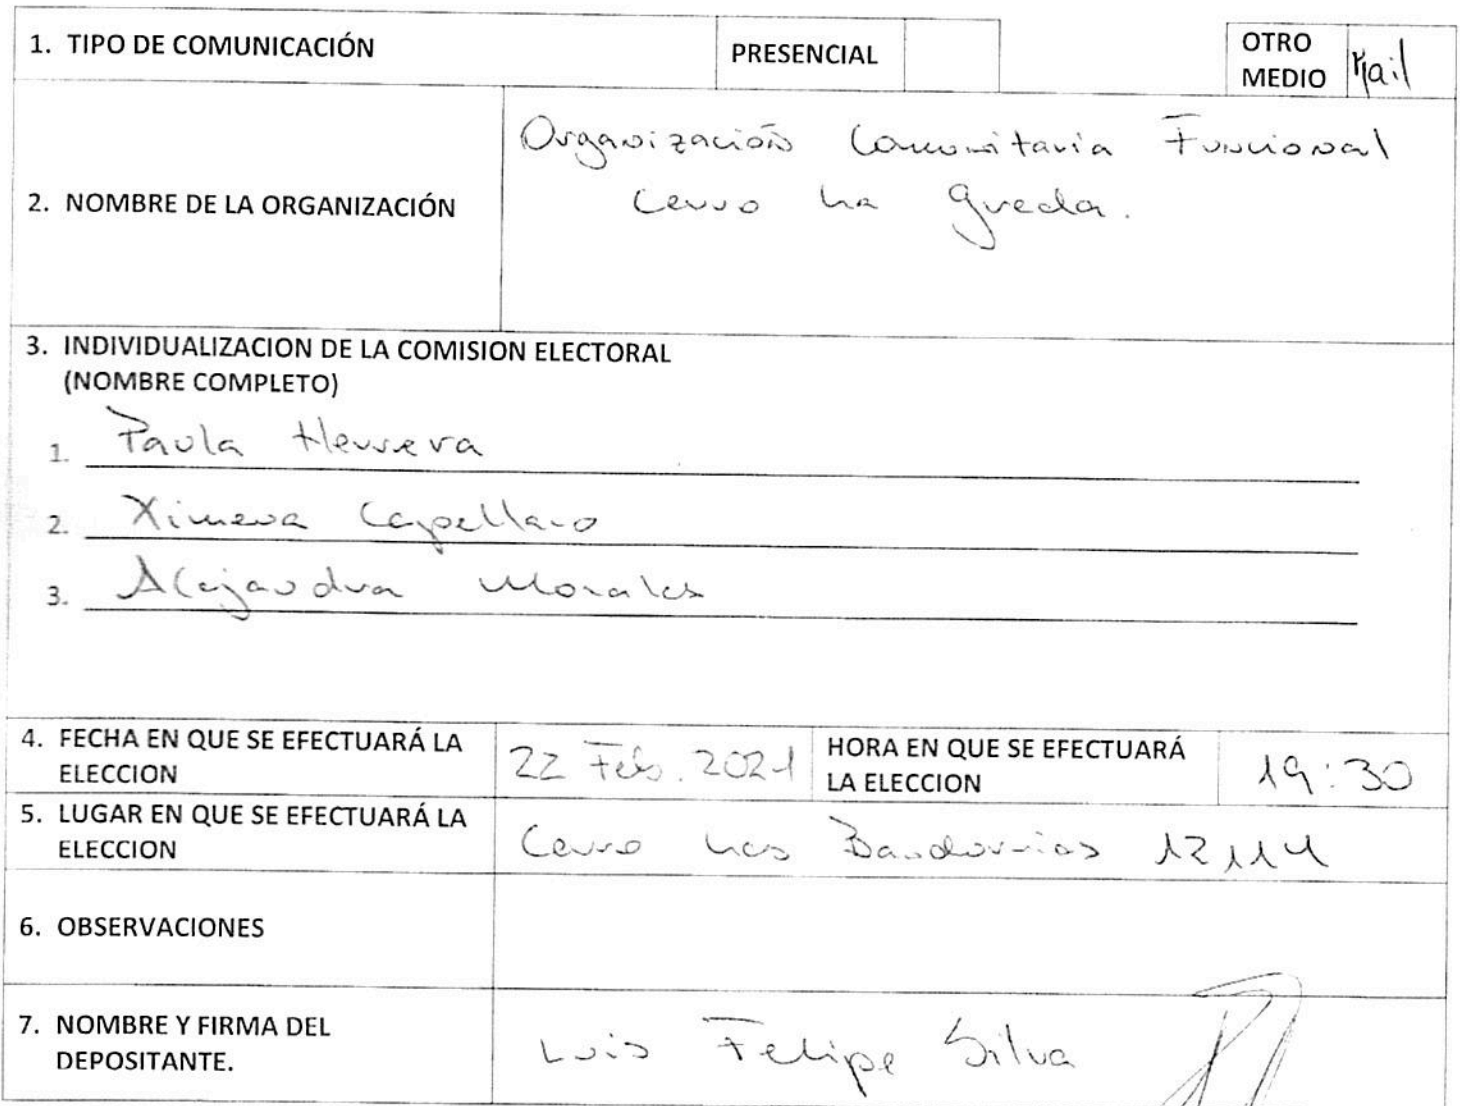 1. TIPO DE COMUNICACIÓN PRESENCIAL OTRO MEDIO Mail
Organización Comunitaria Funcional
2. NOMBRE DE LA ORGANIZACIÓN Cerro La Greda.
3. INDIVIDUALIZACION DE LA COMISION ELECTORAL
(NOMBRE COMPLETO)
1. Paula Herrera
2. Ximena Capellaro
3. Alejandra Morales
4. FECHA EN QUE SE EFECTUARÁ LA ELECCION 22 Feb. 2021 HORA EN QUE SE EFECTUARÁ LA ELECCION 19:30
5. LUGAR EN QUE SE EFECTUARÁ LA ELECCION Cerro Las Bandurrias 12114
6. OBSERVACIONES
7. NOMBRE Y FIRMA DEL DEPOSITANTE. Luis Felipe Silva